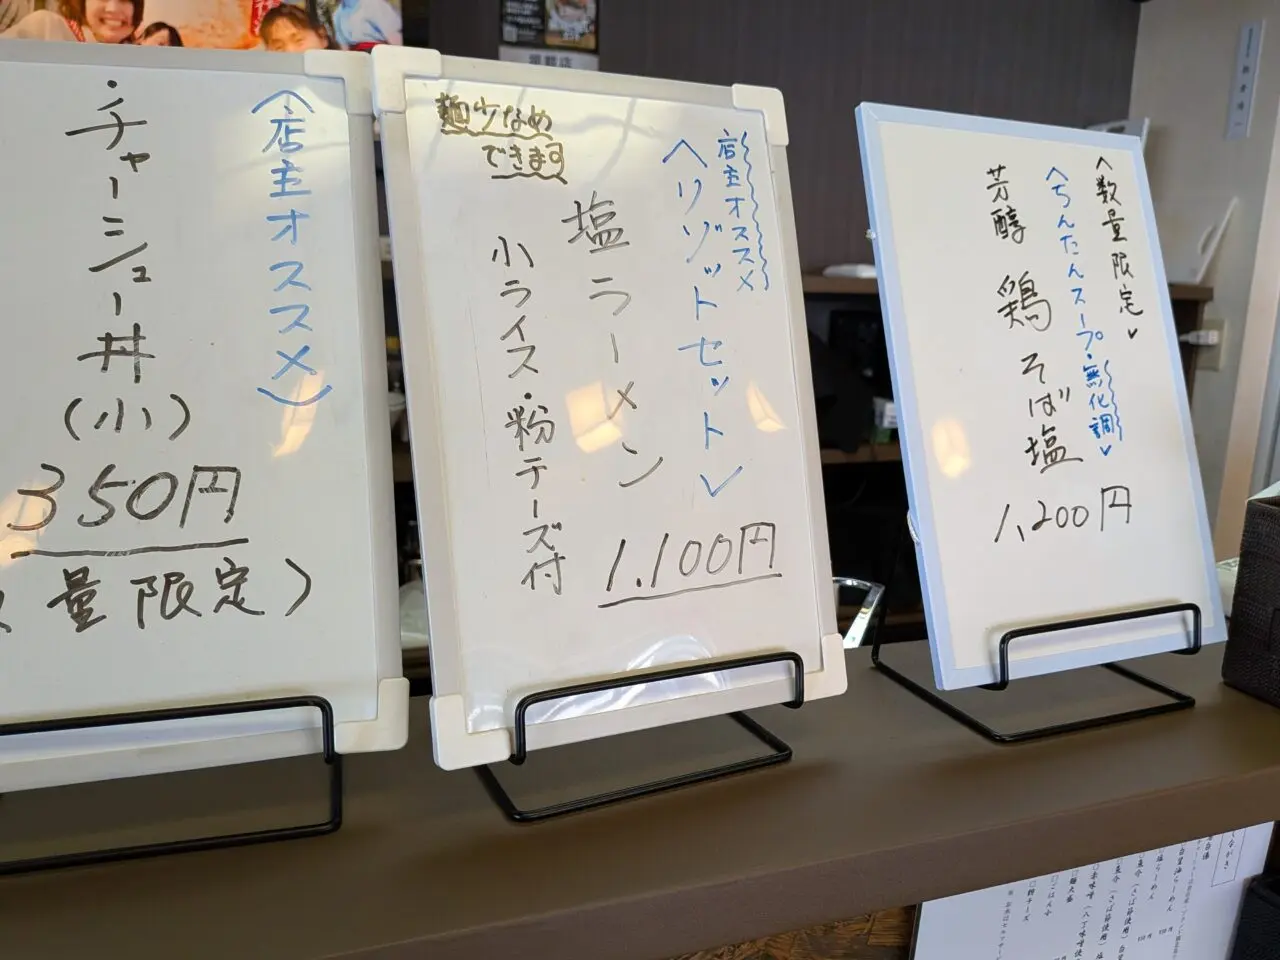 〈店主オススメ〉
・チャーシュー丼
(小)
350円
量限定)
麺少なめ
できます
店主オススメ
〈リゾットセット〉
塩ラーメン
小ライス・粉チーズ付
1.100円
〈数量限定〉
〈ちんたんスープ・無化調〉
芳醇 鶏そば塩
1,200円
掲載店